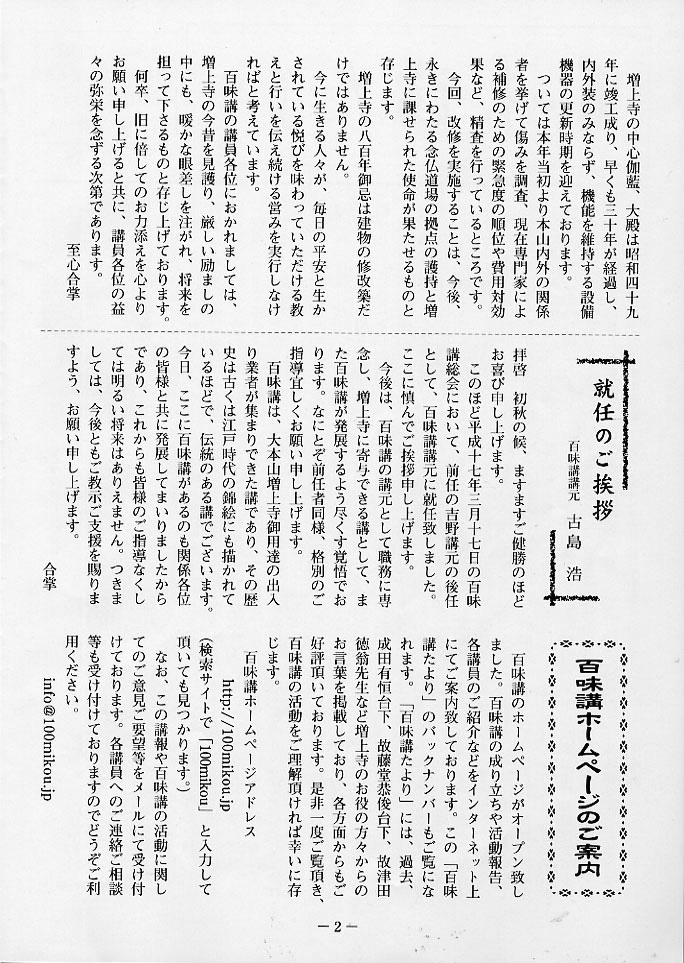 増上寺の中心伽藍、大殿は昭和四十九
年に竣工成り、早くも三十年が経過し、
内外装のみならず、機能を維持する設備
機器の更新時期を迎えております。
ついては本年当初より本山内外の関係
者を挙げて傷みを調査、現在専門家によ
る補修のための緊急度の順位や費用対効
果など、精査を行っているところです。
今回、改修を実施することは、今後、
永きにわたる念仏道場の拠点の護持と増
上寺に課せられた使命が果たせるものと
存じます。
増上寺の八百年御忌は建物の修改築だ
けではありません。
今に生きる人々が、毎日の平安と生か
されている悦びを味わっていただける教
えと行いを伝え続ける営みを実行しなけ
ればと考えています。
百味講の講員各位におかれましては、
増上寺の今昔を見護り、厳しい励ましの
中にも、暖かな眼差しを注がれ、将来を
担って下さるものと存じ上げております。
何卒、旧に倍してのお力添えを心より
お願い申し上げると共に、講員各位の益
々の弥栄を念ずる次第であります。
至心合掌
就任のご挨拶
百味講講元 古島 浩
拝啓 初秋の候、ますますご健勝のほど
お喜び申し上げます。
このほど平成十七年三月十七日の百味
講総会において、前任の吉野講元の後任
として、百味講講元に就任致しました。
ここに慎んでご挨拶申し上げます。
今後は、百味講の講元として職務に専
念し、増上寺に寄与できる講として、ま
た百味講が発展するよう尽くす覚悟でお
ります。なにとぞ前任者同様、格別のご
指導宜しくお願い申し上げます。
百味講は、大本山増上寺御用達の出入
り業者が集まりできた講であり、その歴
史は古くは江戸時代の錦絵にも描かれて
いるほどで、伝統のある講でございます。
今日、ここに百味講があるのも関係各位
の皆様と共に発展してまいりましたから
であり、これからも皆様のご指導なくし
ては明るい将来はありえません。つきま
しては、今後ともご教示ご支援を賜りま
すよう、お願い申し上げます。
合掌
百味講ホームページのご案内
百味講のホームページがオープン致し
ました。百味講の成り立ちや活動報告、
各講員のご紹介などをインターネット上
にてご案内致しております。この「百味
講たより」のバックナンバーもご覧にな
れます。「百味講たより」には、過去、
成田有恒台下、故藤堂恭俊台下、故津田
徳翁先生など増上寺のお役の方々からの
お言葉を掲載しており、各方面からもご
好評頂いております。是非一度ご覧頂き、
百味講の活動をご理解頂ければ幸いに存
じます。
百味講ホームページアドレス
http://100mikou.jp
(検索サイトで「100mikou」と入力して
頂いても見つかります。)
なお、この講報や百味講の活動に関し
てのご意見ご要望等をメールにて受け付
けております。各講員へのご連絡ご相談
等も受け付けておりますのでどうぞご利
用ください。
info@100mikou.jp
－2－